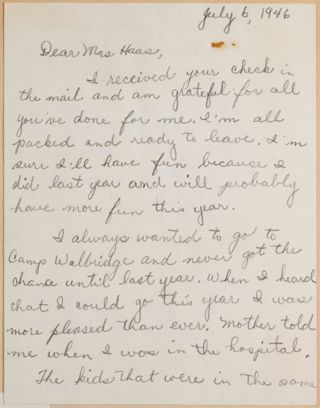 July 6, 1946
Dear Mrs Haas,
I received your check in
the mail and am grateful for all
you've done for me. I'm all
packed and ready to leave. I'm
sure I'll have fun because I
did last year and will probably
have more fun this year.
I always wanted to go to
Camp Walbridge and never got the
chance until last year. When I heard
that I could go this year I was
more pleased than ever. Mother told
me when I was in the hospital.
The kids that were in the same